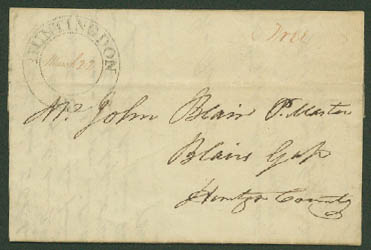 HUNTINGDON
March 29
Free
Mr. John Blair P. Master
Blairs Gap
Huntgn County